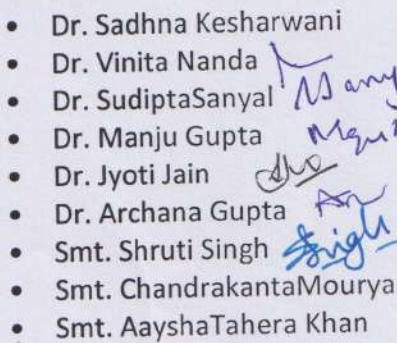 • Dr. Sadhna Kesharwani
• Dr. Vinita Nanda
• Dr. SudiptaSanyal
• Dr. Manju Gupta
• Dr. Jyoti Jain
• Dr. Archana Gupta
• Smt. Shruti Singh Singh
• Smt. ChandrakantaMourya
• Smt. AayshaTahera Khan